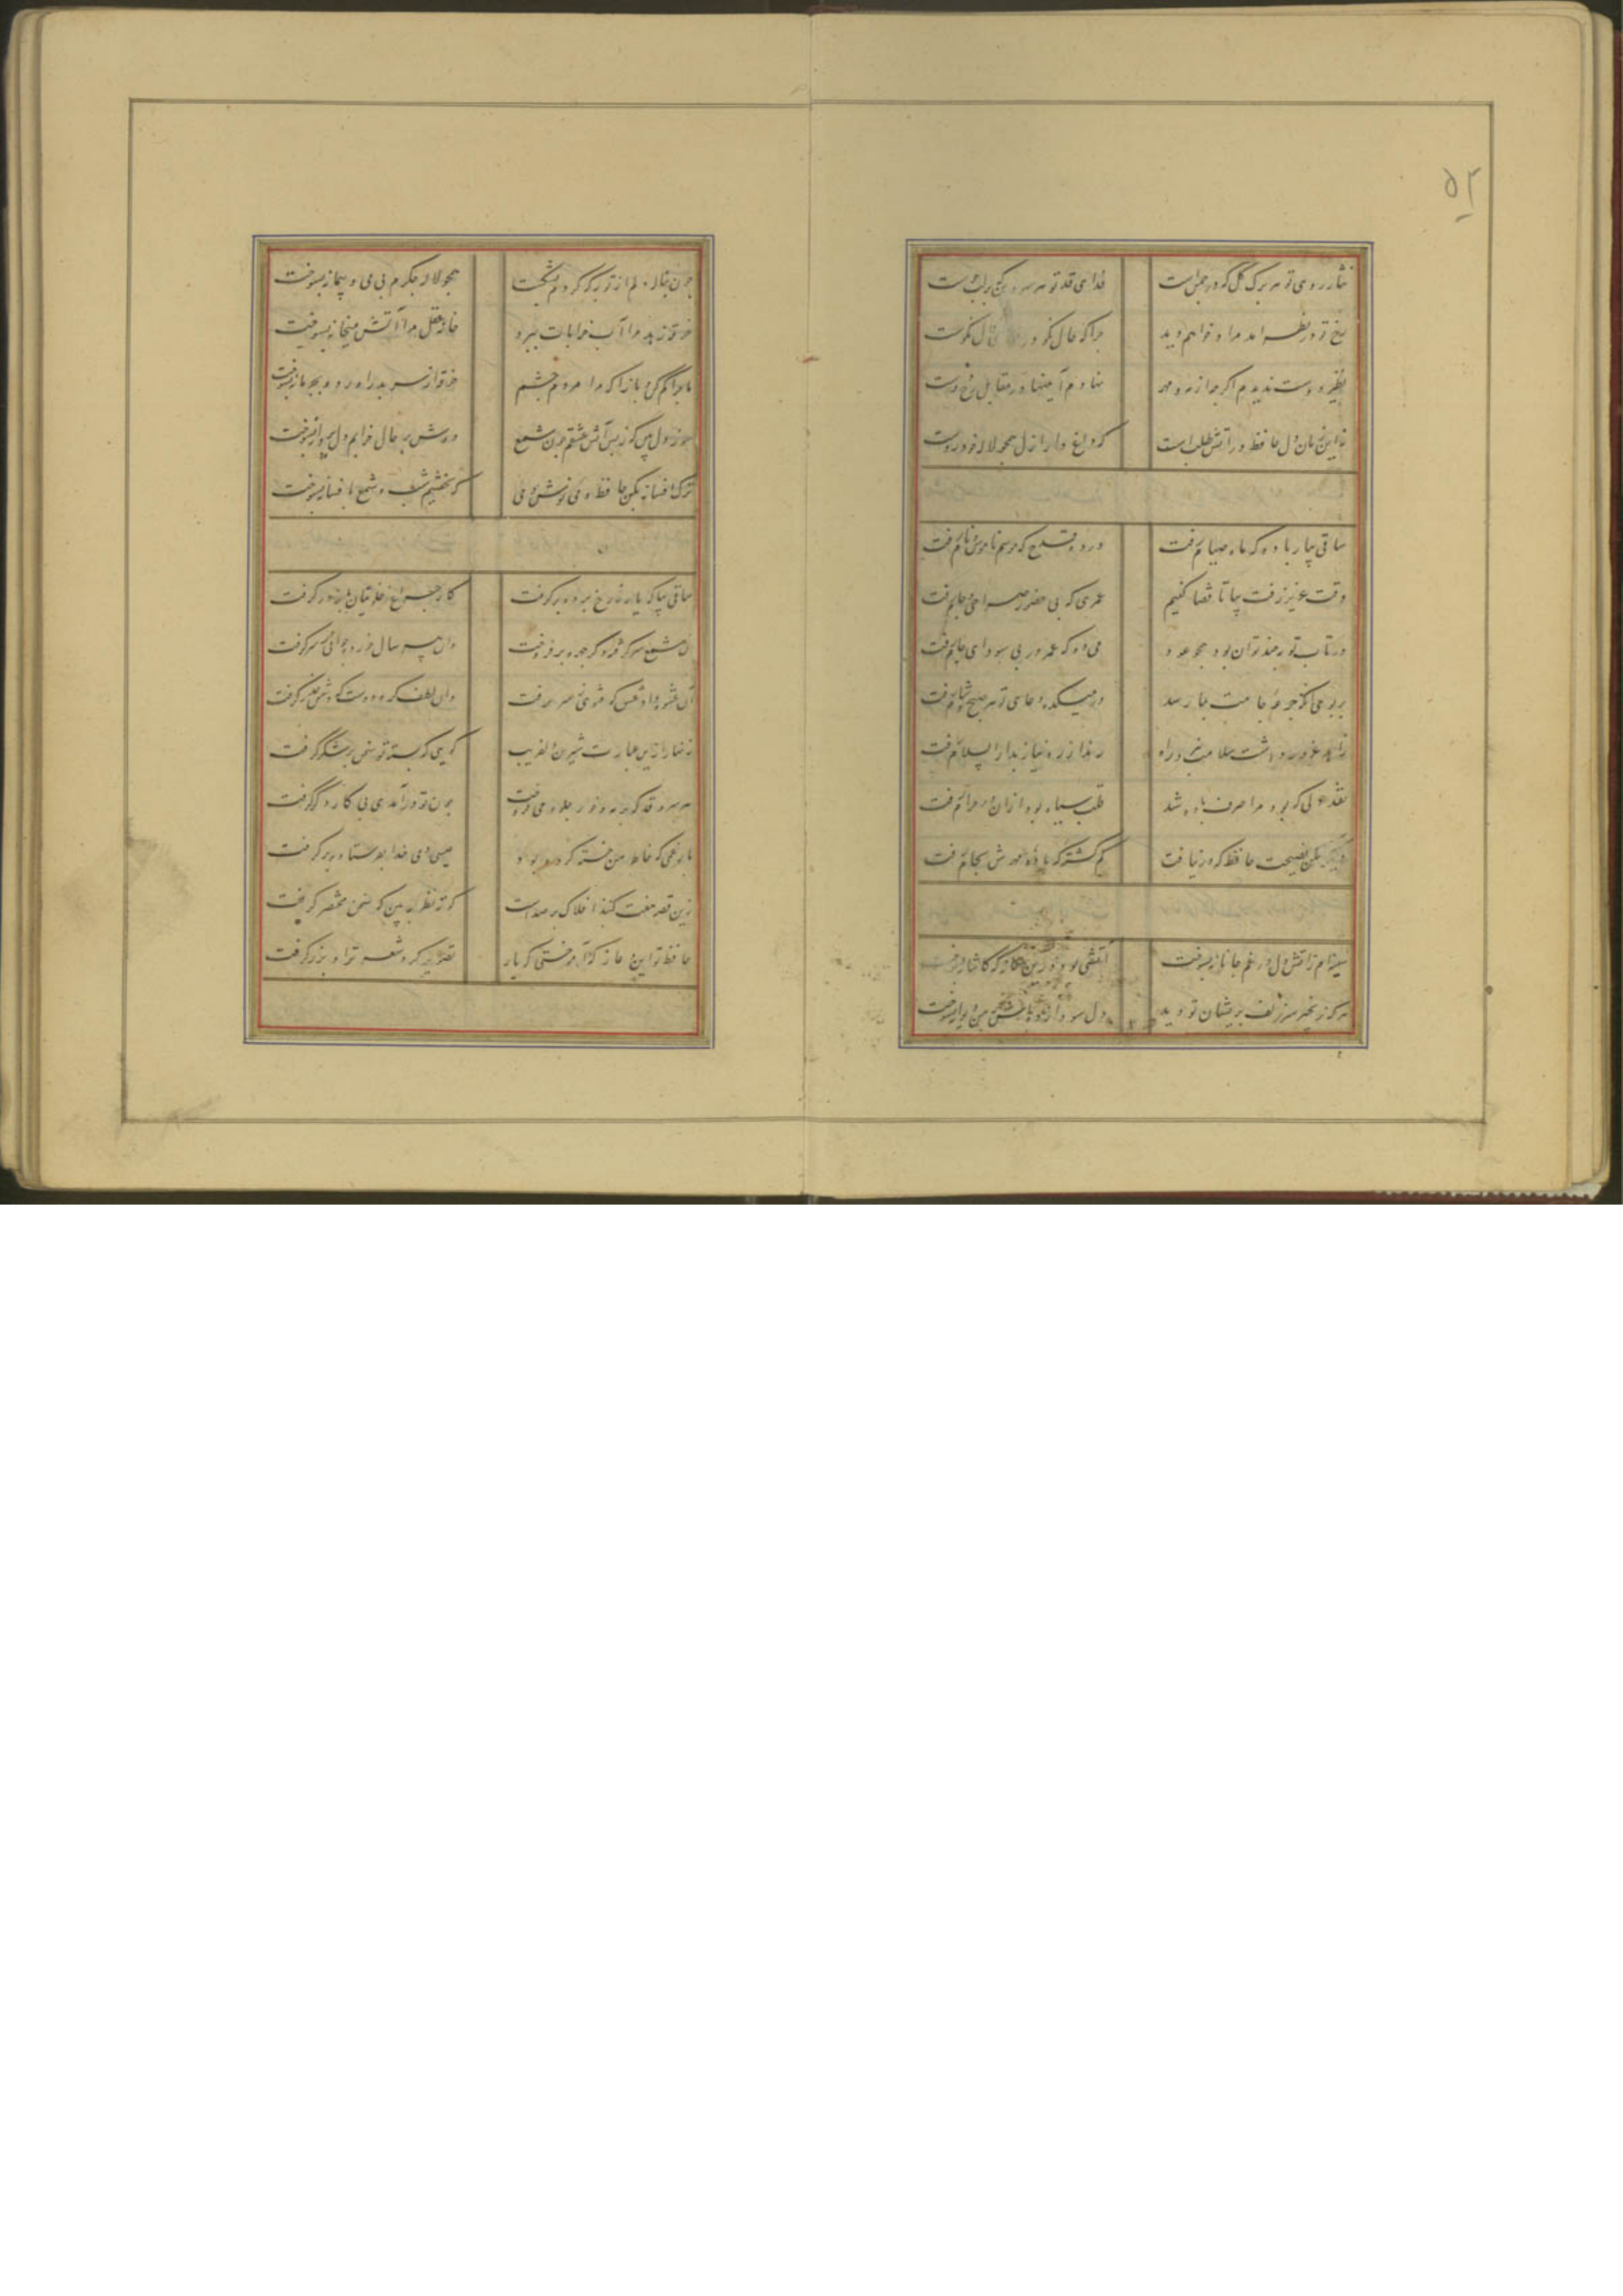 ۵۲
نثار روی تو هر برک کل که در چمن است
فدای قد تو هر سرو بن که بر لب جوست
رخ تو در نظر آمد مرا و خواهم دید
چرا که حال نکو در فال نکوست
نظیر دوست ندیدم اکرچه از مه و مهر
نهادم آینها در مقابل رخ دوست
نه این زمان دل حافظ در آتش طلب است
که داغ دار ازل همچو لاله خودروست
ساقی بیار باده که ماه صیام رفت
درده قدح که موسم ناموس و نام رفت
وقت عزیز رفت بیا تا قضا کنیم
عمری که بی حضور صراحی و جام رفت
در تاب توبه چند توان بود همچو عود
می ده که عمر در بی سودای خام رفت
بر بوی آنکه جرعه جامت بما رسد
در میکده دعای تو هر صبح و شام رفت
زاهد غرور داشت سلامت نبرد راه
رند از ره نیاز بدار السلام رفت
نقد دلی که بود مرا صرف باده شد
قلب سیاه بود از ان در حرام رفت
دیگر مکن نصیحت حافظ که ره نیافت
کم کشته که باده مهرش بکام رفت
سینه ام ز آتش دل در غم جانانه بسوخت
آتشی بود درین خانه که کاشانه بسوخت
هر که زنجیر سر زلف پریشان تو دید
دل سودا زده بر من دیوانه بسوخت
چون پیاله دلم از توبه که کردم بشکست
همچو لاله جکرم بی می و پیمانه بسوخت
خرقه زهد مرا آب خرابات ببرد
خانه عقل مرا آتش میخانه بسوخت
ماجرا کم کن و بازآ که مرا مردم چشم
خرقه از سر بدر آورد و بسوخت
سوز دل بین که ز بس آتش عشقم چون شمع
دوش بر حال خرابم دل پروانه بسوخت
ترک افسانه بکن حافظ و می نوش دمی
که نخفتیم شب و شمع بافسانه بسوخت
ساقی بیا که یار ز رخ پرده برکرفت
کار چراغ خلوتیان باز در کرفت
آن شمع سر کرفته دکر چهره برفروخت
وان پیر سال خورده جوانی ز سر کرفت
آن عشوه داد عشق که مفتی ز ره برفت
وان لطف کرد دوست که دشمن حذر کرفت
زنهار ازین عبارت شیرین دلفریب
کویی که بسته تو سخن در شکر کرفت
هر سرو قد که بر مه و خور جلوه می فروخت
چون تو درآمدی پی کار دکر کرفت
بار غمی که خاطر من خسته کرده بود
عیسی دمی خدا بفرستاد و برکرفت
زین قصه هفت کنبد افلاک پر صداست
کوته نظر ببین که سخن مختصر کرفت
حافظ تو این دعا ز که آموختی که یار
تعویذ کرد شعر ترا و بزر کرفت